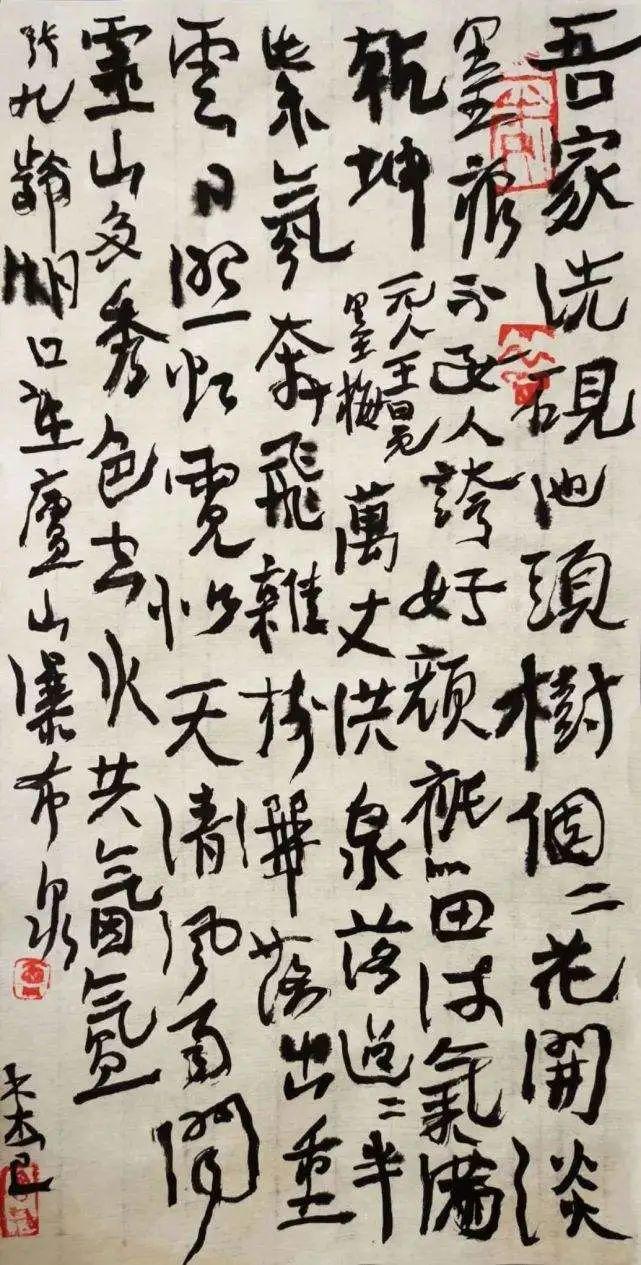 吾家洗硯池頭樹個二花開淡
墨痕不要人誇好顏祗留清氣滿
乾坤
元人王冕
墨梅
萬丈洪泉落迢二半
紫氛奔飛雜樹灑落出重
雲日照虹霓似天清風雨聞
靈山多秀色空水共氤氳
張九齡湖口望廬山瀑布泉